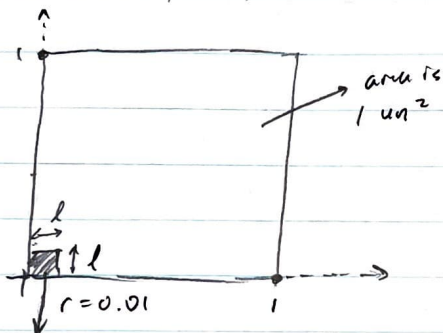 1
area is
1 un²
l
l
r = 0.01
1